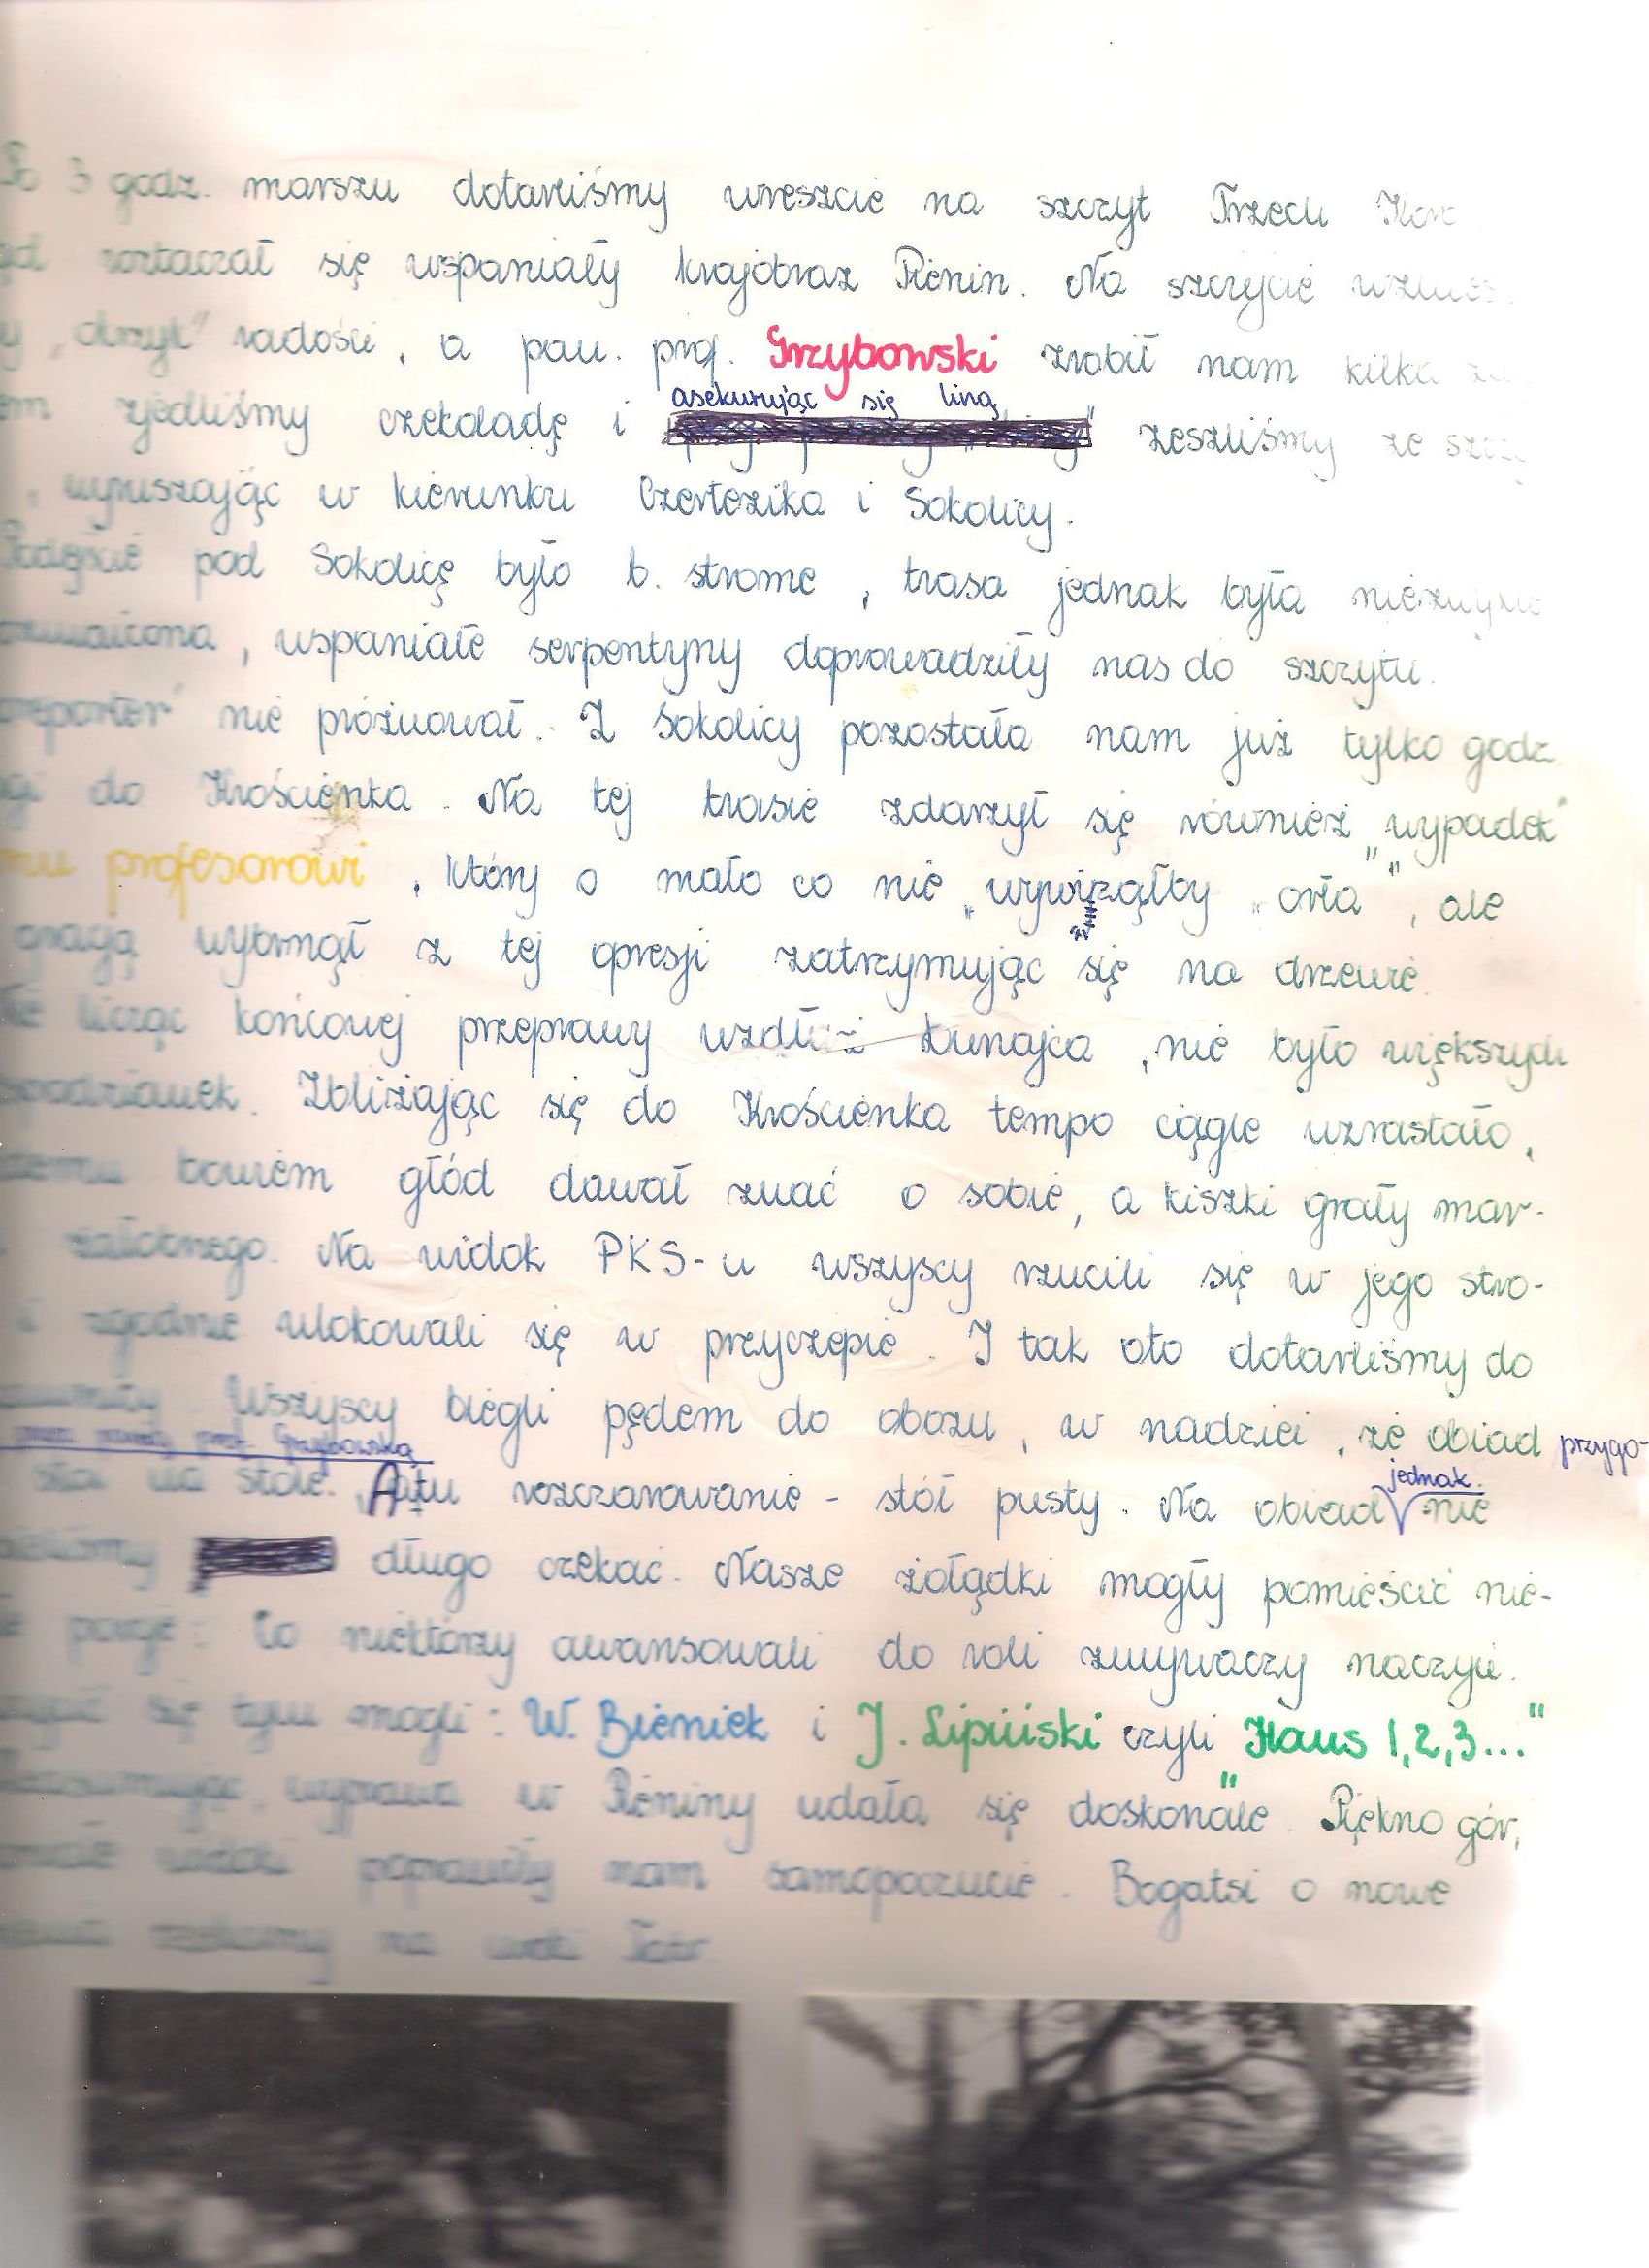 Po 3 godz. marszu dotarliśmy wreszcie na szczyt Trzech
roztaczał się wspaniały krajobraz Pienin. Na szczycie
"okrzyk" radości, a pan. prof. Grzybowski zrobił nam kilka
zjedliśmy czekoladę i asekurując się liną zeszliśmy ze
, wyruszając w kierunku Czertezika i Sokolicy.
Podejście pod Sokolicę było b. strome, trasa jednak była niezwykle
, wspaniałe serpentyny doprowadziły nas do szczytu.
reporter" nie próżnował. Z Sokolicy pozostała nam już tylko godz.
do Krościenka. Na tej trasie zdarzył się również "wypadek"
profesorowi, który o mało co nie "wywinąłby "orła", ale
wybrnął z tej opresji zatrzymując się na drzewie.
licząc końcowej przeprawy wzdłuż Dunajca, nie było większych
Zbliżając się do Krościenka tempo ciągle wzrastało,
bowiem głód dawał znać o sobie, a kiszki grały mar-
żałobnego. Na widok PKS-u wszyscy rzucili się w jego stro-
i zgodnie ulokowali się w przyczepie. I tak oto dotarliśmy do
Wszyscy biegli pędem do obozu, w nadziei, że obiad przygo-
prof. Grzybowską
stoi na stole. A tu rozczarowanie - stół pusty. Na obiad jednak nie
długo czekać. Nasze żołądki mogły pomieścić nie-
porcje: Co niektórzy awansowali do roli zmywaczy naczyń.
się tym mogli: W. Bieniek i J. Lipiński czyli "Haus 1,2,3..."
wyprawa w Pieniny udała się doskonale. Piękno gór,
widoki poprawiły nam samopoczucie. Bogatsi o nowe
na